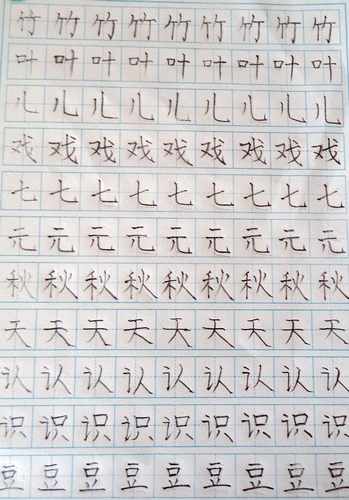 竹竹竹竹竹竹竹竹竹
叶叶叶叶叶叶叶叶叶
儿儿儿儿儿儿儿儿儿
戏戏戏戏戏戏戏戏戏
七七七七七七七七七
元元元元元元元元元
秋秋秋秋秋秋秋秋秋
天天天天天天天天天
认认认认认认认认认
识识识识识识识识识
豆豆豆豆豆豆豆豆豆